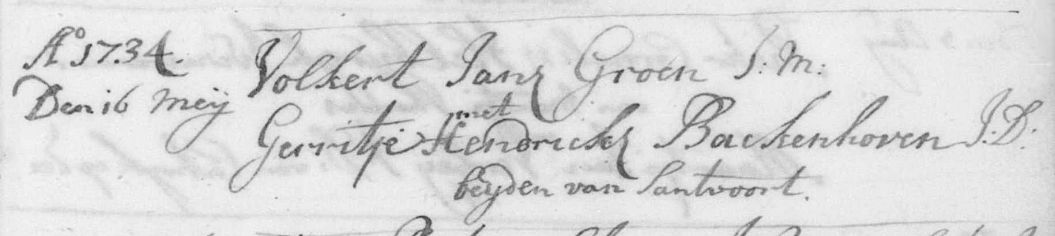 Aº 1734.
Den 16 Meij
Volkert Janz Groen J: M:
met
Gerritje Hendrickz Backenhoven J: D:
beyden van Santvoort.